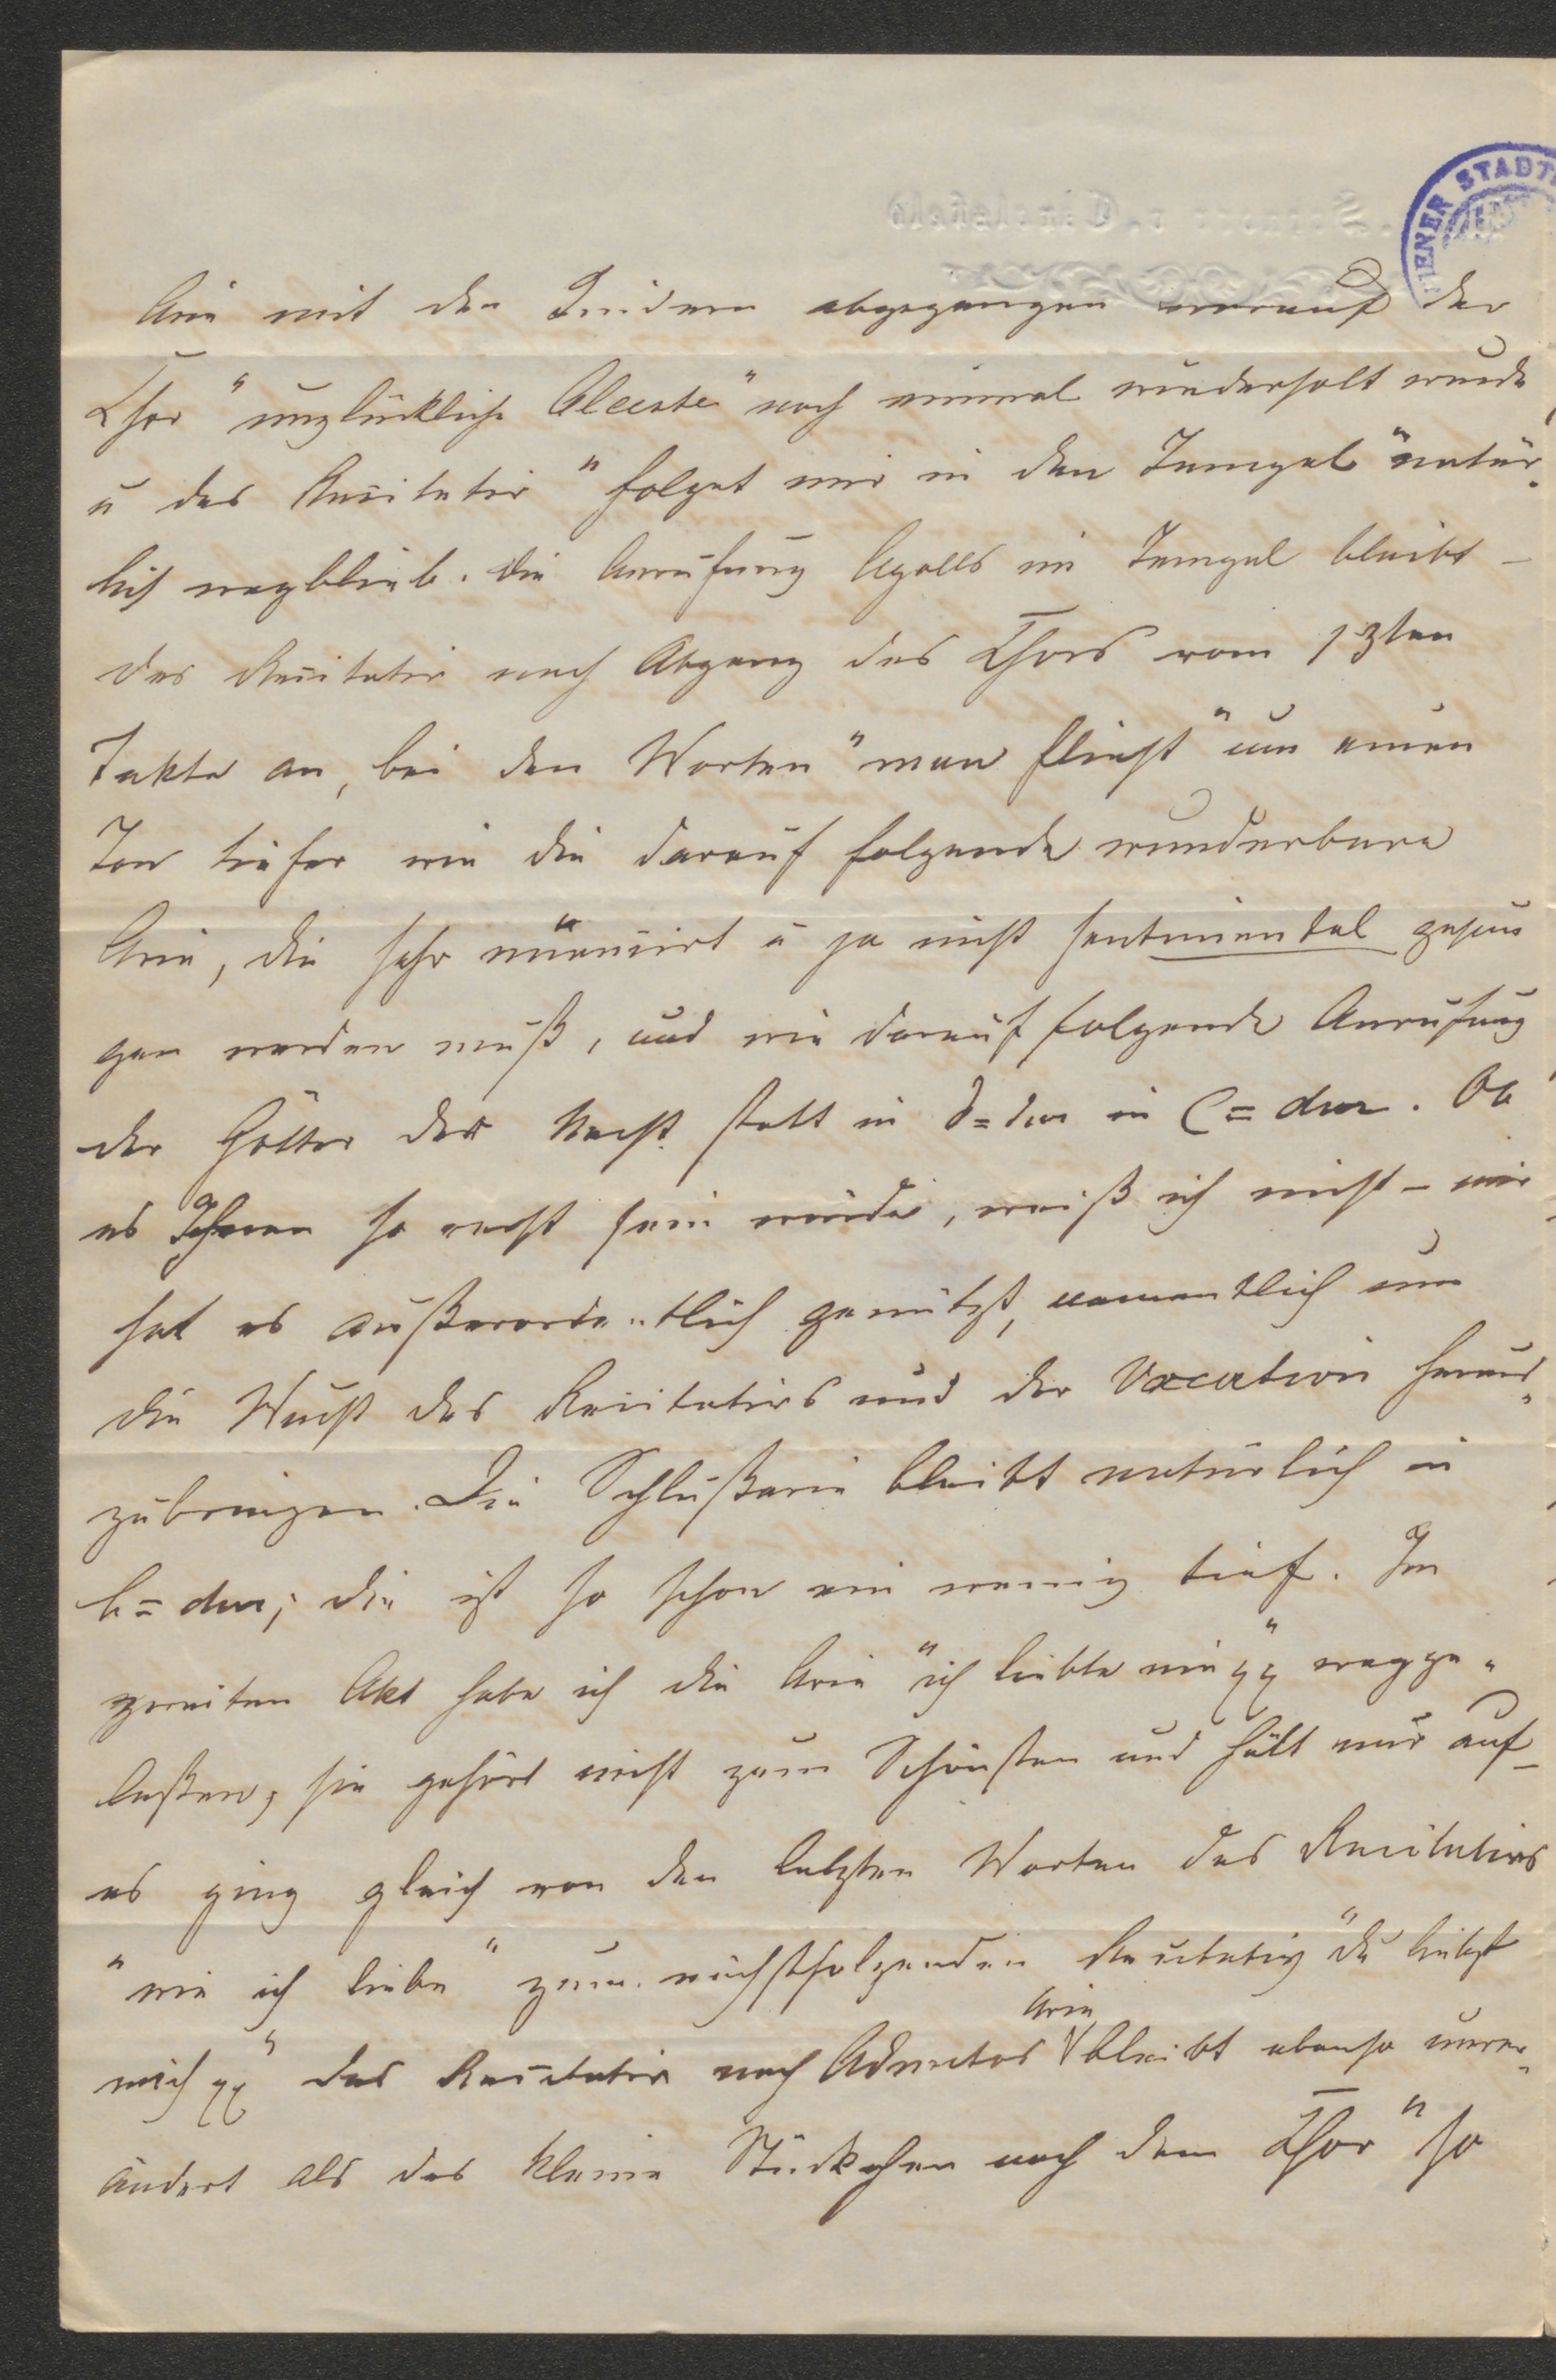 WIENER STADT
Arie mit den Kindern abgegangen worauf der
Chor "unglückliche Alceste" noch einmal wiederholt wurde
u das Recitativ "folget mir in den Tempel" natür-
lich wegblieb. Die Anrufung Apolls im Tempel bleibt –
das Recitativ nach Abgang des Chors vom 13ten
Takte an, bei den Worten "man flieht" um einen
Ton tiefer wie die darauf folgende wunderbare
Arie, die sehr nüancirt u ja nicht sentimental gesun
gen werden muß, und wie darauf folgende Anrufung
der Götter der Nacht statt in d=dur in C=dur. Ob
es Ihnen so recht sein würde, weiß ich nicht – mir
hat es außerordentlich genützt, namentlich um
die Wucht des Recitativs und der Vocation heraus-
zubringen. Die Schlußarie bleibt natürlich in
b=dur; die ist so schon ein wenig tief. Im
zweiten Akt habe ich die Arie "ich liebte nie xx" wegge-
laßen, sie gehört nicht zum Schönsten und hält nur auf –
es ging gleich von den letzten Worten des Recitativs
"wie ich liebe" zum nächstfolgenden Recitativ "du liebst
mich xx" das Recitativ nach Admetos Arie bleibt ebenso unver-
ändert als das kleine Stückchen nach dem Chor "so